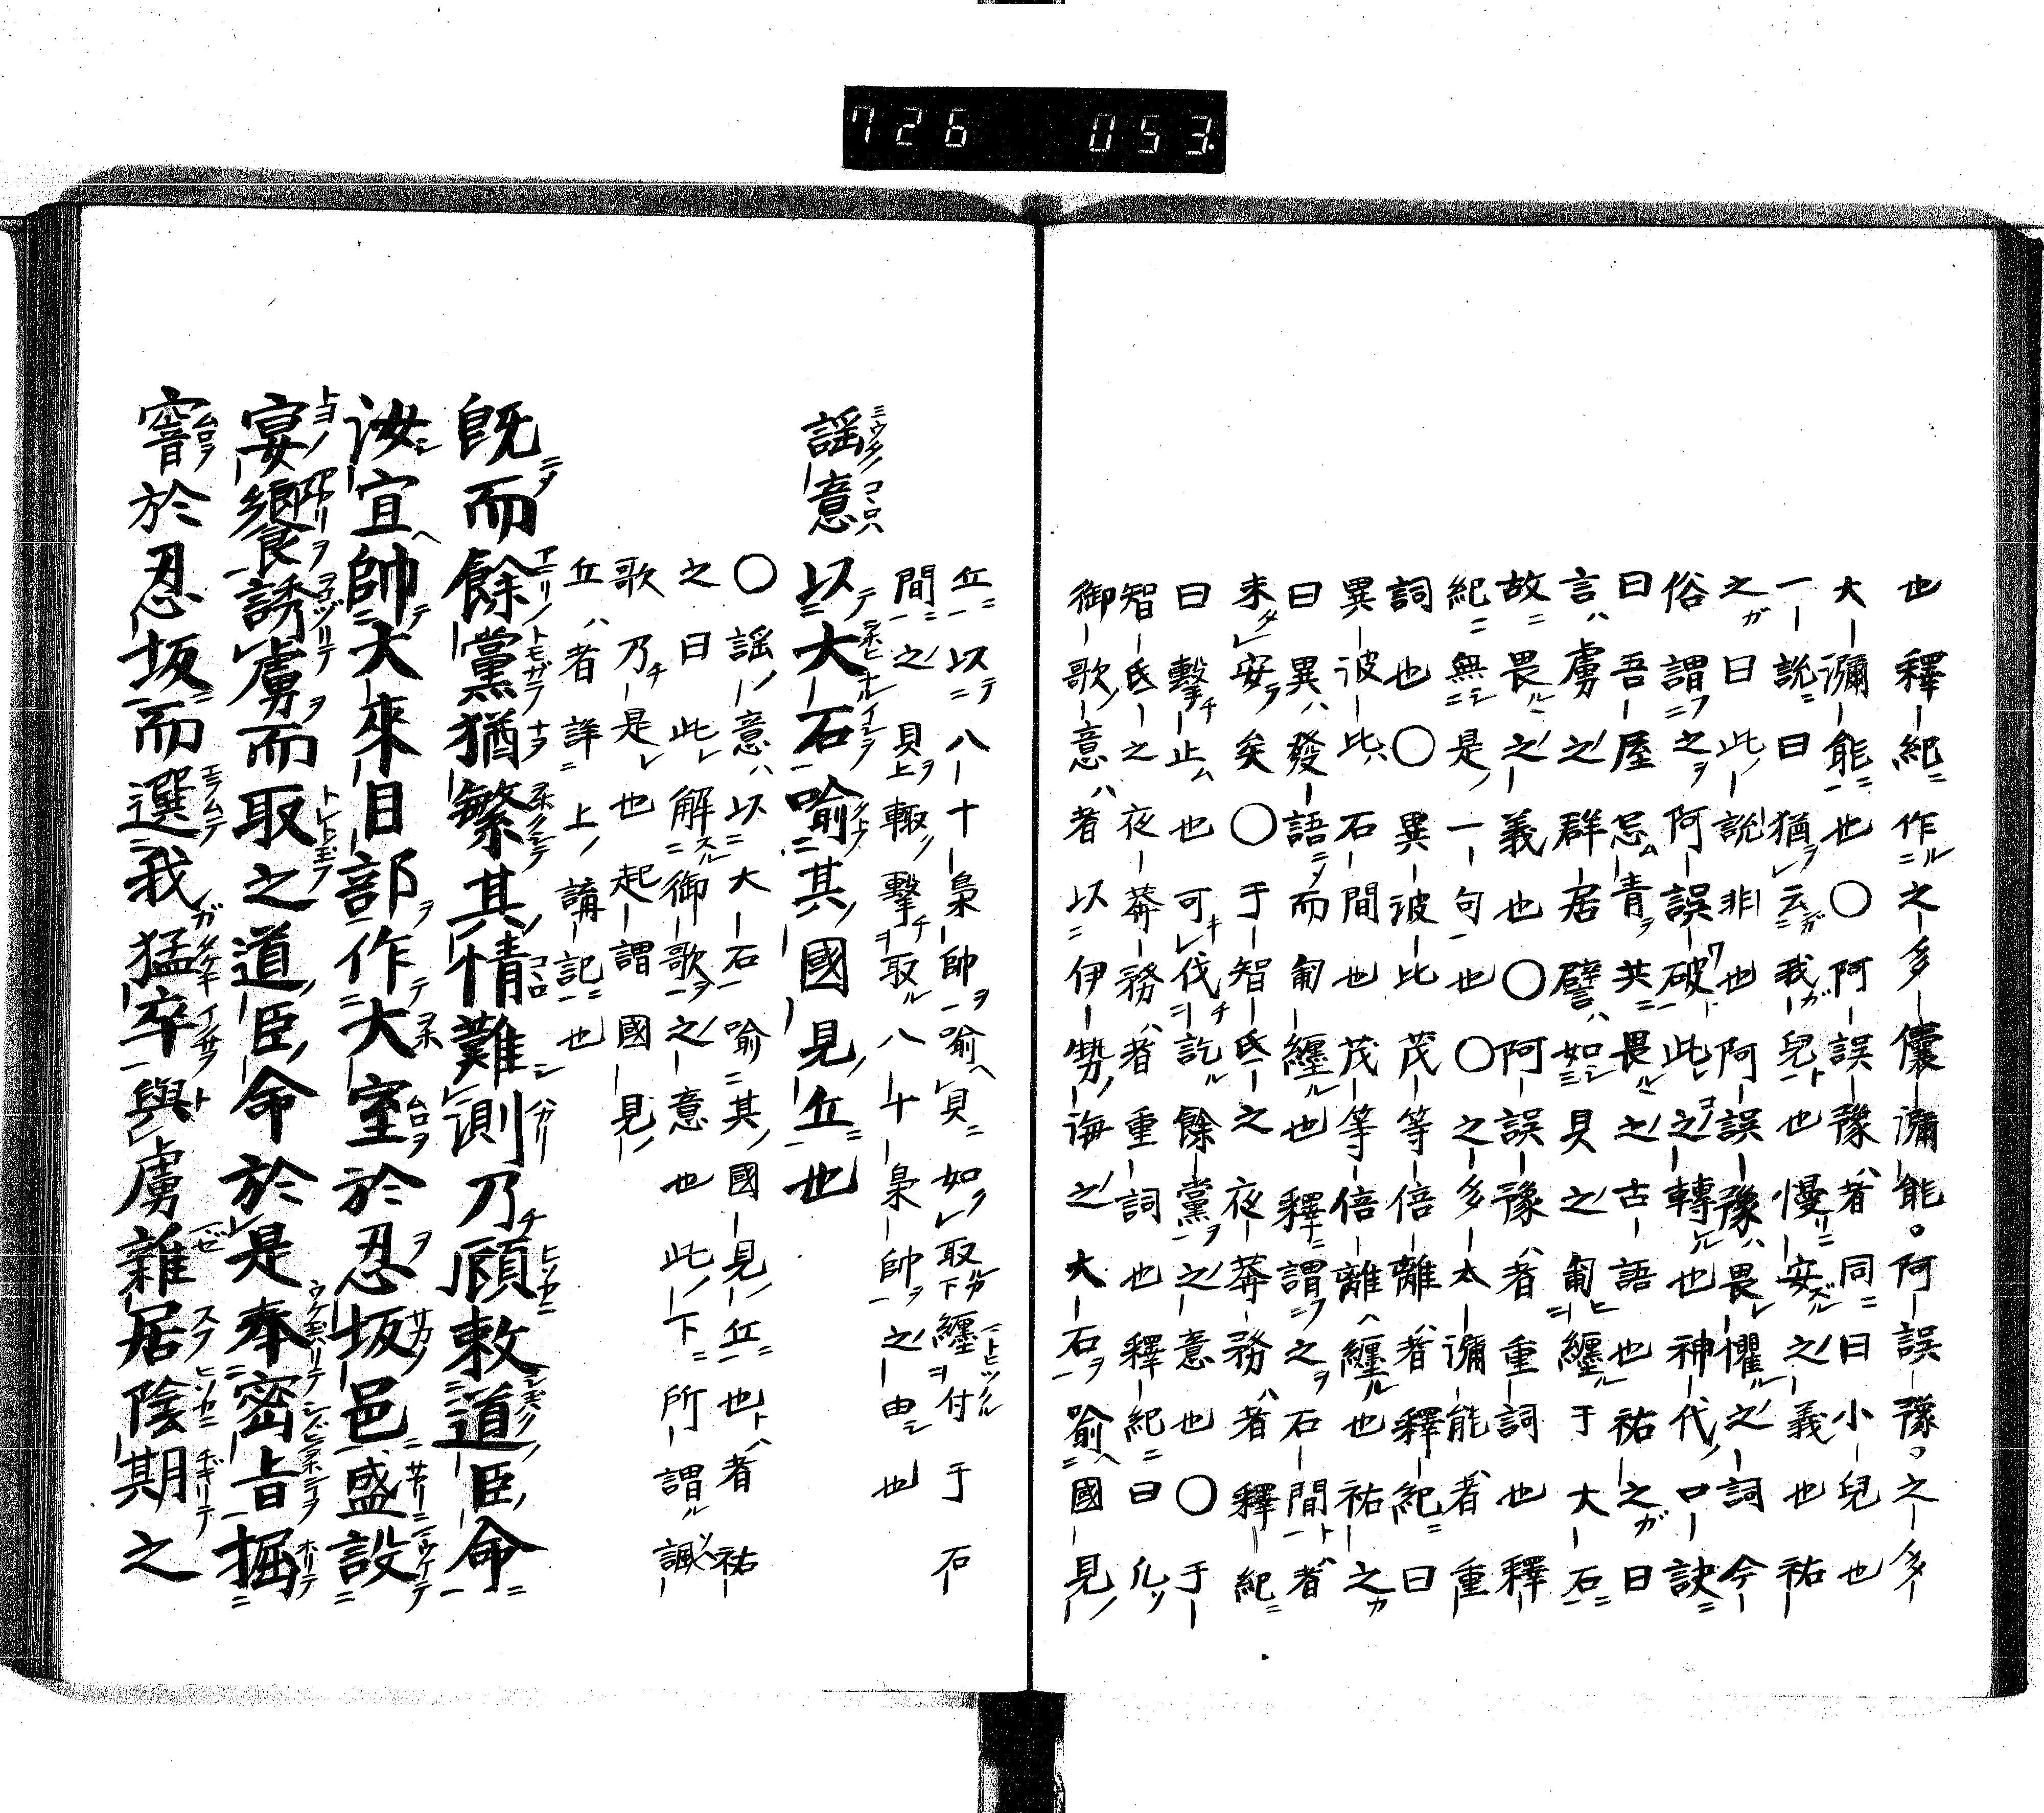 726 053.
也釋紀作之多儾彌能。阿誤豫。之多
大彌能也○阿誤豫者同曰小兒也
一說曰猶云我兒也慢安之義也祐
之曰此說非也阿誤豫畏懼之詞今
俗謂之阿誤破此之轉也神代口訣
曰吾屋忌青共畏之古語也祐之曰
言虜之群居譬如貝之匍纏于大石
故畏之義也○阿誤豫者重詞也釋
紀無是一句也○之多太彌能者重
詞也○異波比茂等倍離者釋紀曰
異波比石間也茂等倍離纏也祐之
曰異發語而匍纏也釋謂之石間者
来安矣○于智氐之夜莾務者釋紀
曰擊止也可伐訖餘黨之意也○于
智氐之夜莾務者重詞也釋紀曰凡
御歌意者以伊勢海之大石喻國見
丘以八十梟帥喻貝如取纏付于石
間之貝輙擊取八十梟帥之由也
謡意以大石喻其國見丘也
○謡意以大石喻其國見丘也者祐
之曰此解御歌之意也此下所謂諷
歌乃是也起謂國見
丘者詳上講記也
既而餘黨猶繁其情難測乃顧敕道臣命
汝宜帥大來目部作大室於忍坂邑盛設
宴饗誘虜而取之道臣命於是奉密旨掘
窨於忍坂而選我猛卒與虜雜居陰期之